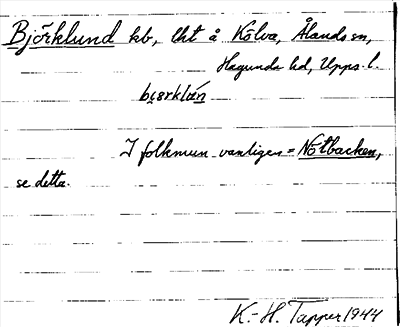 Björklund kb, lht å Kölva, Ålands sn,
Hagunda hd, Upps. l.
bjørklán
I folkmun vanligen = Nötbacken,
se detta.
K.-H. Tapper 1944